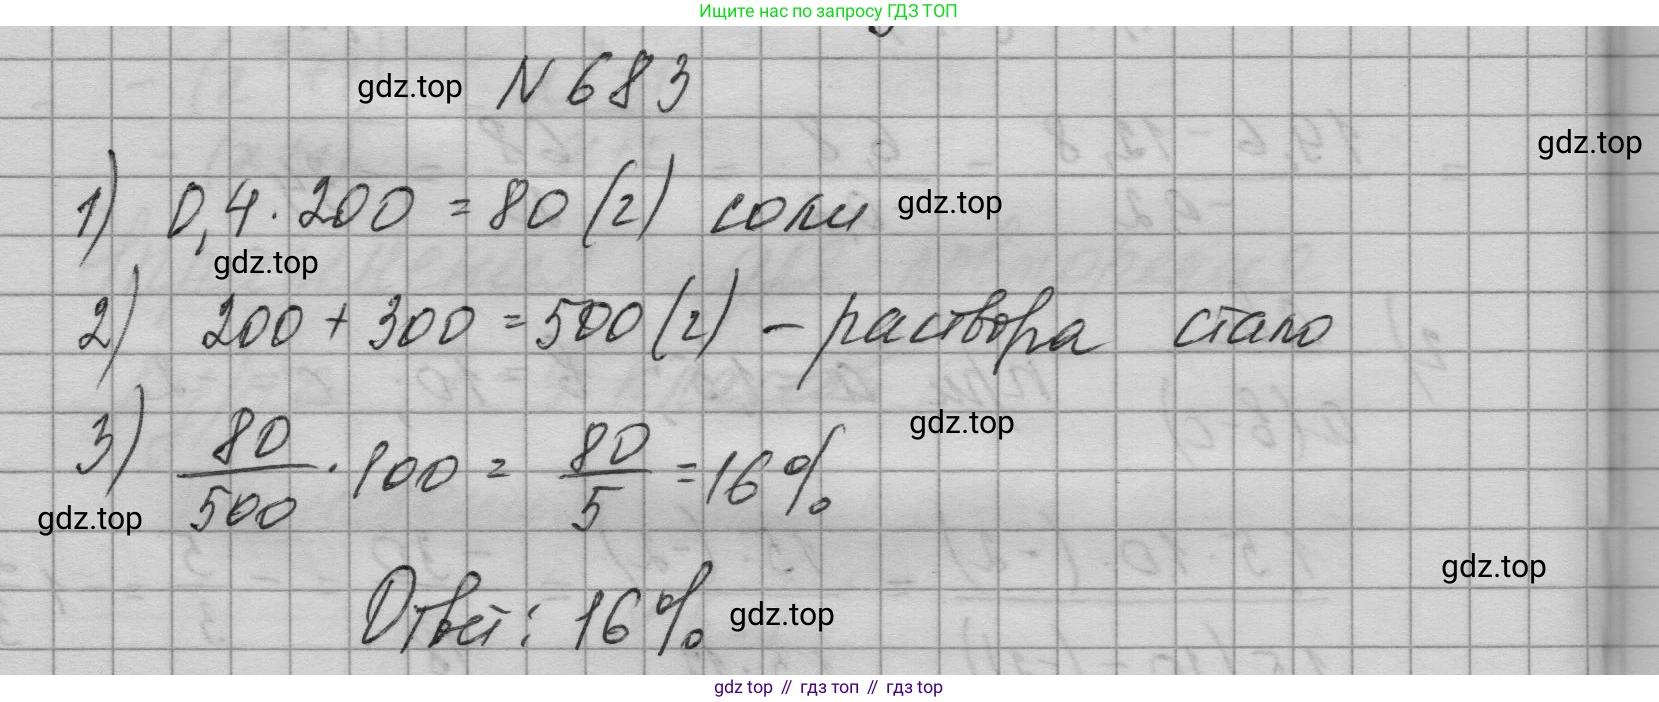 Ищите нас по запросу ГДЗ ТОП
gdz.top N 683
gdz.top
1) 0,4 · 200 = 80 (г) соли gdz.top
gdz.top
2) 200 + 300 = 500 (г) – раствора стало
3) 80/500 · 100 = 80/5 = 16% gdz.top
gdz.top
gdz.top
Ответ: 16% gdz.top
gdz top // гдз топ // gdz top